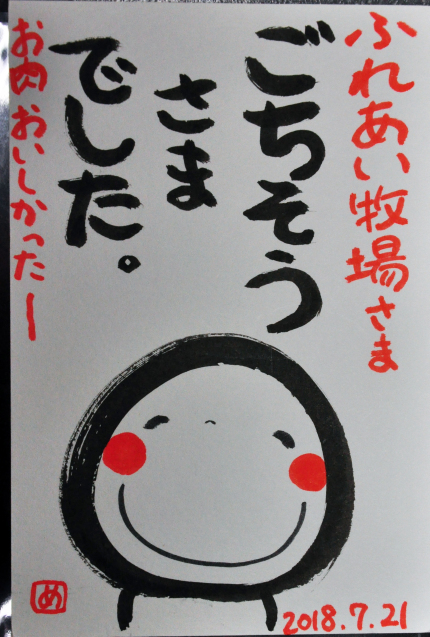 ふれあい牧場さま
ごちそう
さま
でした。
お肉おいしかったー
め
2018.7.21